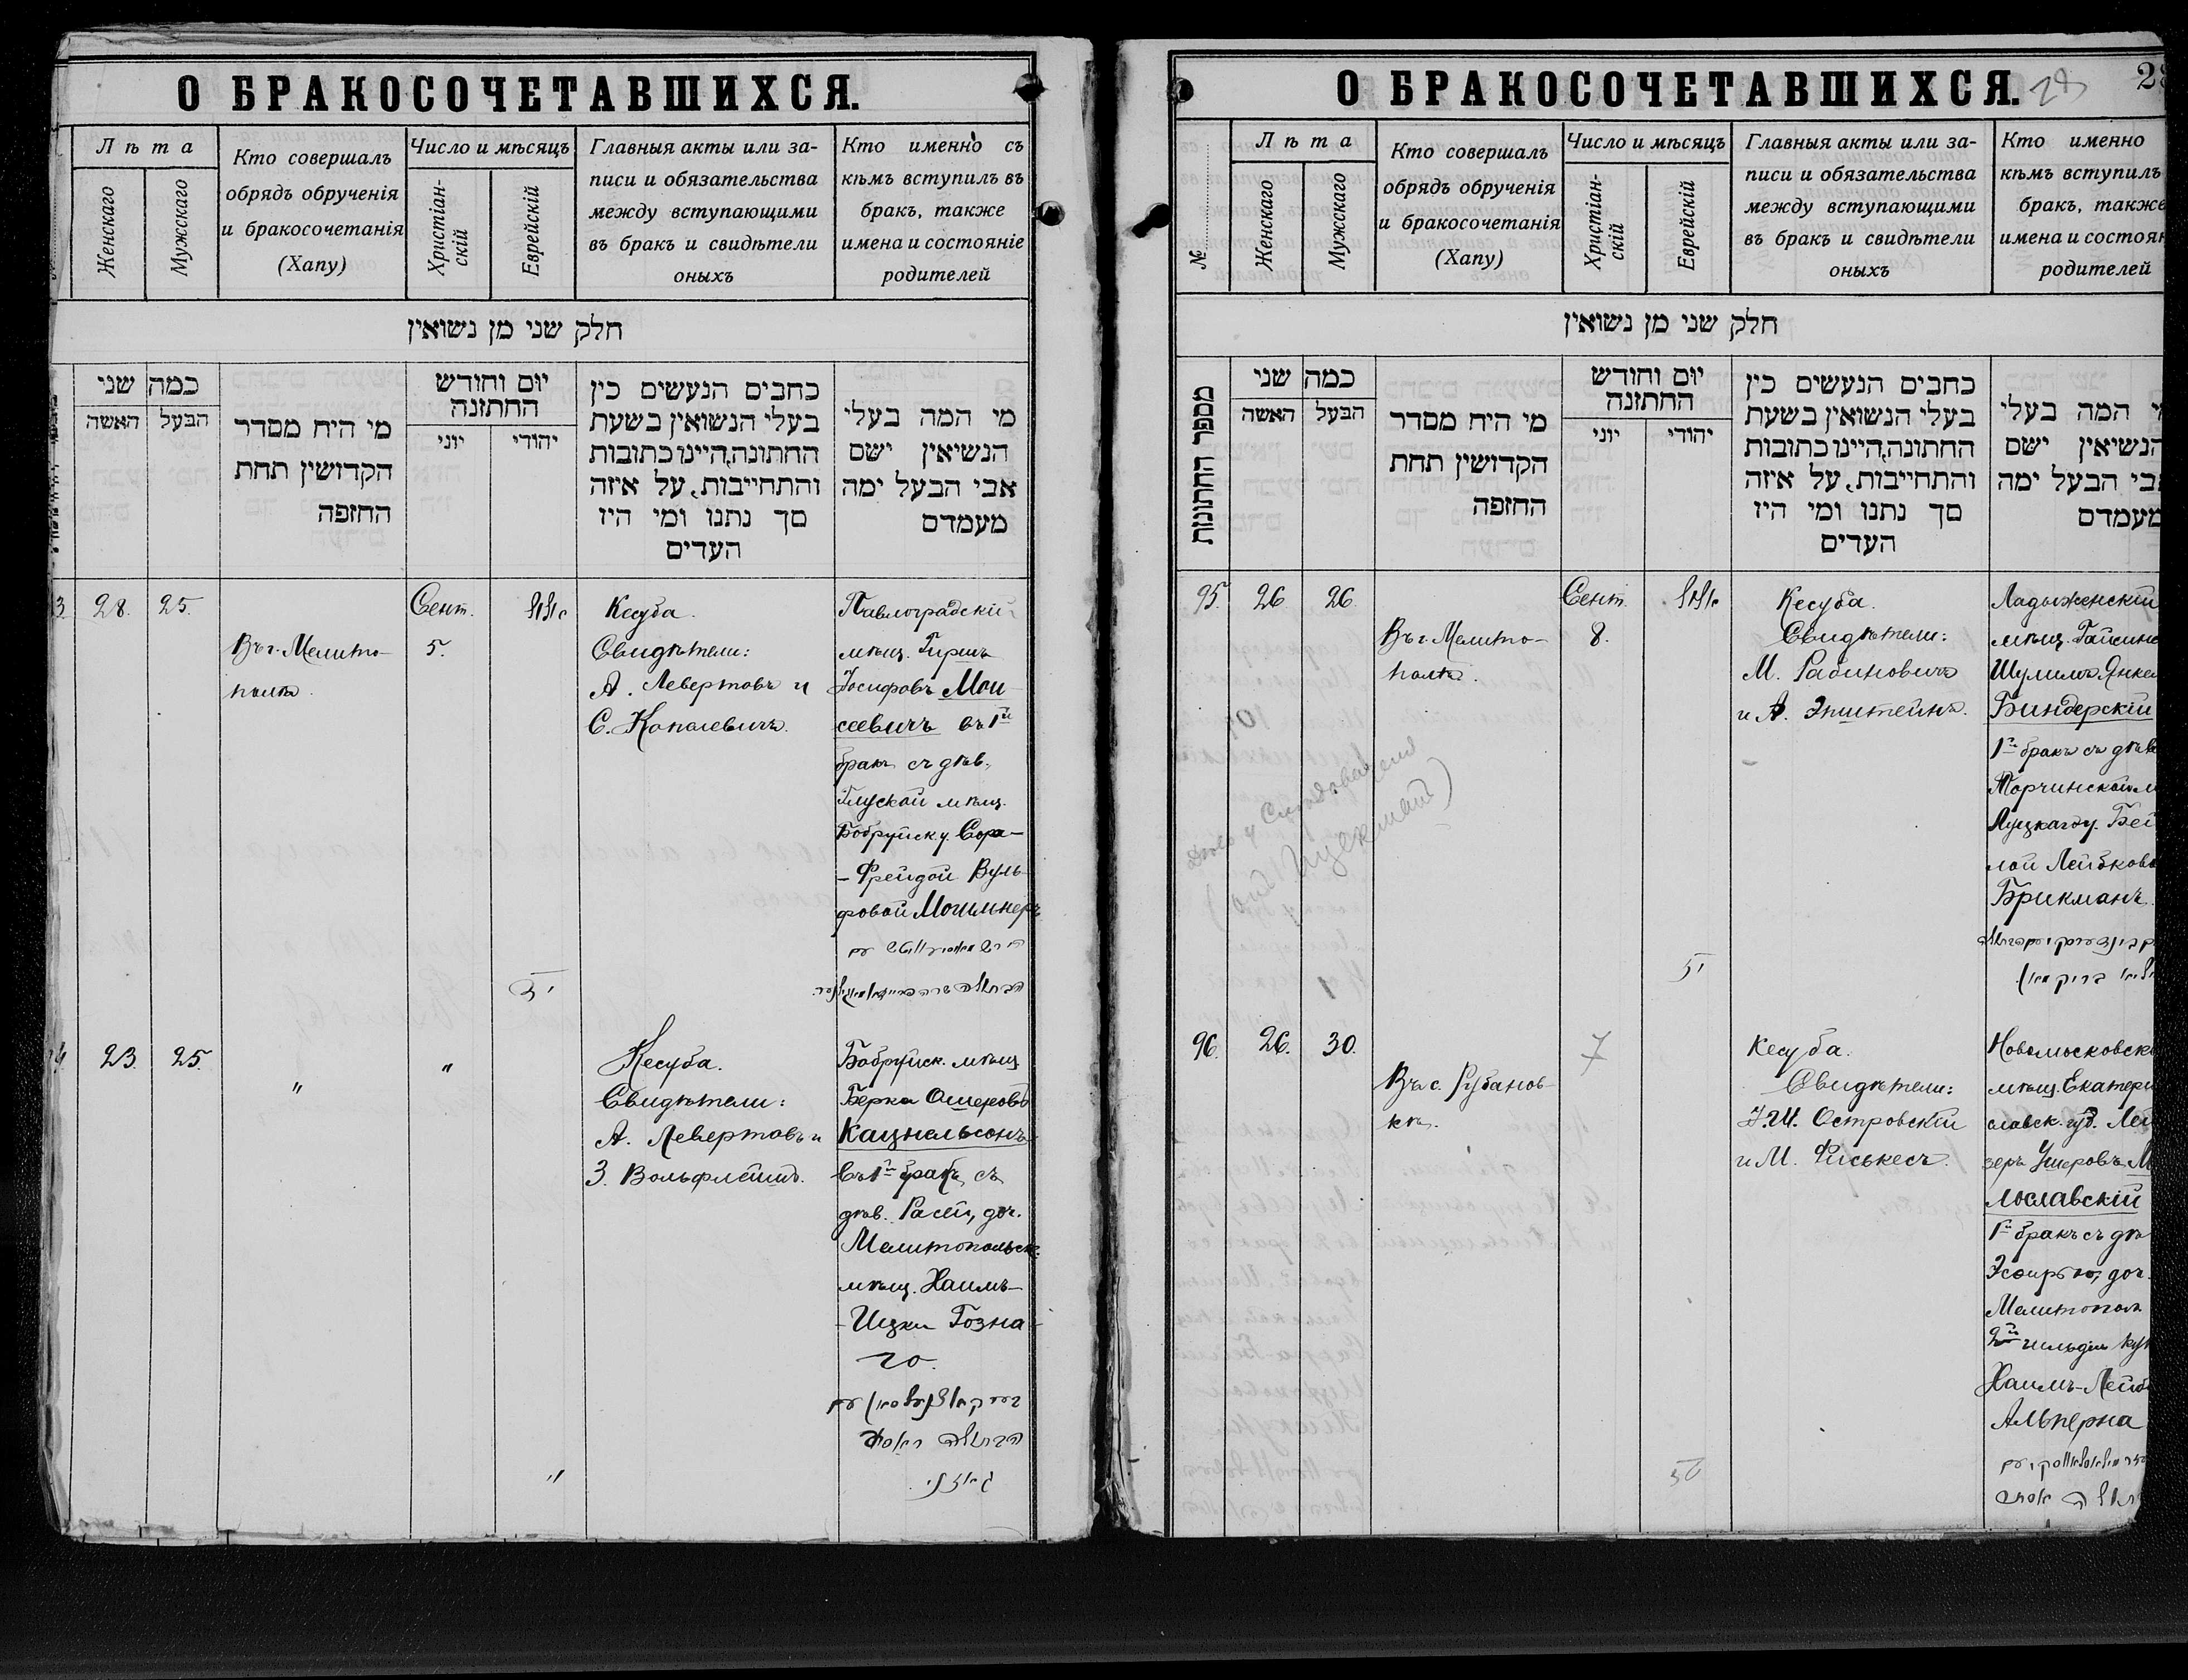 О БРАКОСОЧЕТАВШИХСЯ.
Лѣта
Женскаго
Мужскаго
Кто совершалъ
обрядъ обрученія
и бракосочетанія
(Хапу)
Число и мѣсяцъ
Христіан-
скій
Еврейскій
Главныя акты или за-
писи и обязательства
между вступающими
въ бракъ и свидѣтели
оныхъ
Кто именно съ
кѣмъ вступилъ въ
бракъ, также
имена и состояніе
родителей
חלק שני מן נשואין
כמה שני
האשה
הבעל
מי היח מסדר
הקדושין תחת
החזפה
יום וחודש
החתזנה
יוני
יהודי
כחבים הנעשים כין
בעלי הנשואין בשעת
החתונה,היינו כתובות
והתחייבות, על איזה
סך נתנו ומי היז
העדים
מי המה בעלי
הנשיאין ישם
אבי הבעל ימה
מעמדם
3
28.
25.
Въ г. Мелито-
полѣ.
Сент.
5.
Кесуба.
Свидѣтели:
А. Левертовъ и
С. Копалевичъ.
Павлоградскій
мѣщ. Гиршъ
Іосифовъ Мои
сеевичъ въ 1й
бракъ съ дѣв.
Глуской мѣщ.
Бобруйск у. Сора-
-Фрейдой Вуль-
фовой Могилнеръ
23.
25.
"
"
Кесуба.
Свидѣтели:
А. Левертовъ и
З. Вольфлейшъ.
Бобруйск. мѣщ
Берка Ошеровъ
Кацнельсонъ
въ 1й бракъ съ
дѣв. Расей, доч.
Мелитопольск.
мѣщ. Хаимъ-
-Ицки Гозна-
го.
"
О БРАКОСОЧЕТАВШИХСЯ.
28
№
Лѣта
Женскаго
Мужскаго
Кто совершалъ
обрядъ обрученія
и бракосочетанія
(Хапу)
Число и мѣсяцъ
Христіан-
скій
Еврейскій
Главныя акты или за-
писи и обязательства
между вступающими
въ бракъ и свидѣтели
оныхъ
Кто именно
кѣмъ вступилъ
бракъ, также
имена и состоян
родителей
חלק שני מן נשואין
מספר החתונות
כמה שני
האשה
הבעל
מי היח מסדר
הקדושין תחת
החזפה
יום וחודש
החתזנה
יוני
יהודי
כחבים הנעשים כין
בעלי הנשואין בשעת
החתונה,היינו כתובות
והתחייבות, על איזה
סך נתנו ומי היז
העדים
י המה בעלי
הנשיאין ישם
בי הבעל ימה
מעמדם
95.
26
26.
Въ г. Мелито-
полѣ.
Сент.
8.
Кесуба.
Свидѣтели:
М. Рабиновичъ
и А. Эпштейнъ.
Ладыженскій
мѣщ. Гайсинс
Шулимъ Янкел
Биндерскій
1й бракъ съ дѣв
Торчинской м
Луцкаго у. Бей
лой Лейбково
Брикманъ.
96.
26.
30.
Въ с. Рубанов-
кѣ.
7
Кесуба.
Свидѣтели:
Островскій
и М. Фиськесъ.
Новомосковск
мѣщ. Екатери
славск. губ. Лей
зеръ Ушеровъ М
лославскій
1й бракъ съ дѣ
Эсѳирью, доч.
Мелитопол
2й гильдіи куп
Хаимъ-Лейб
Альперна